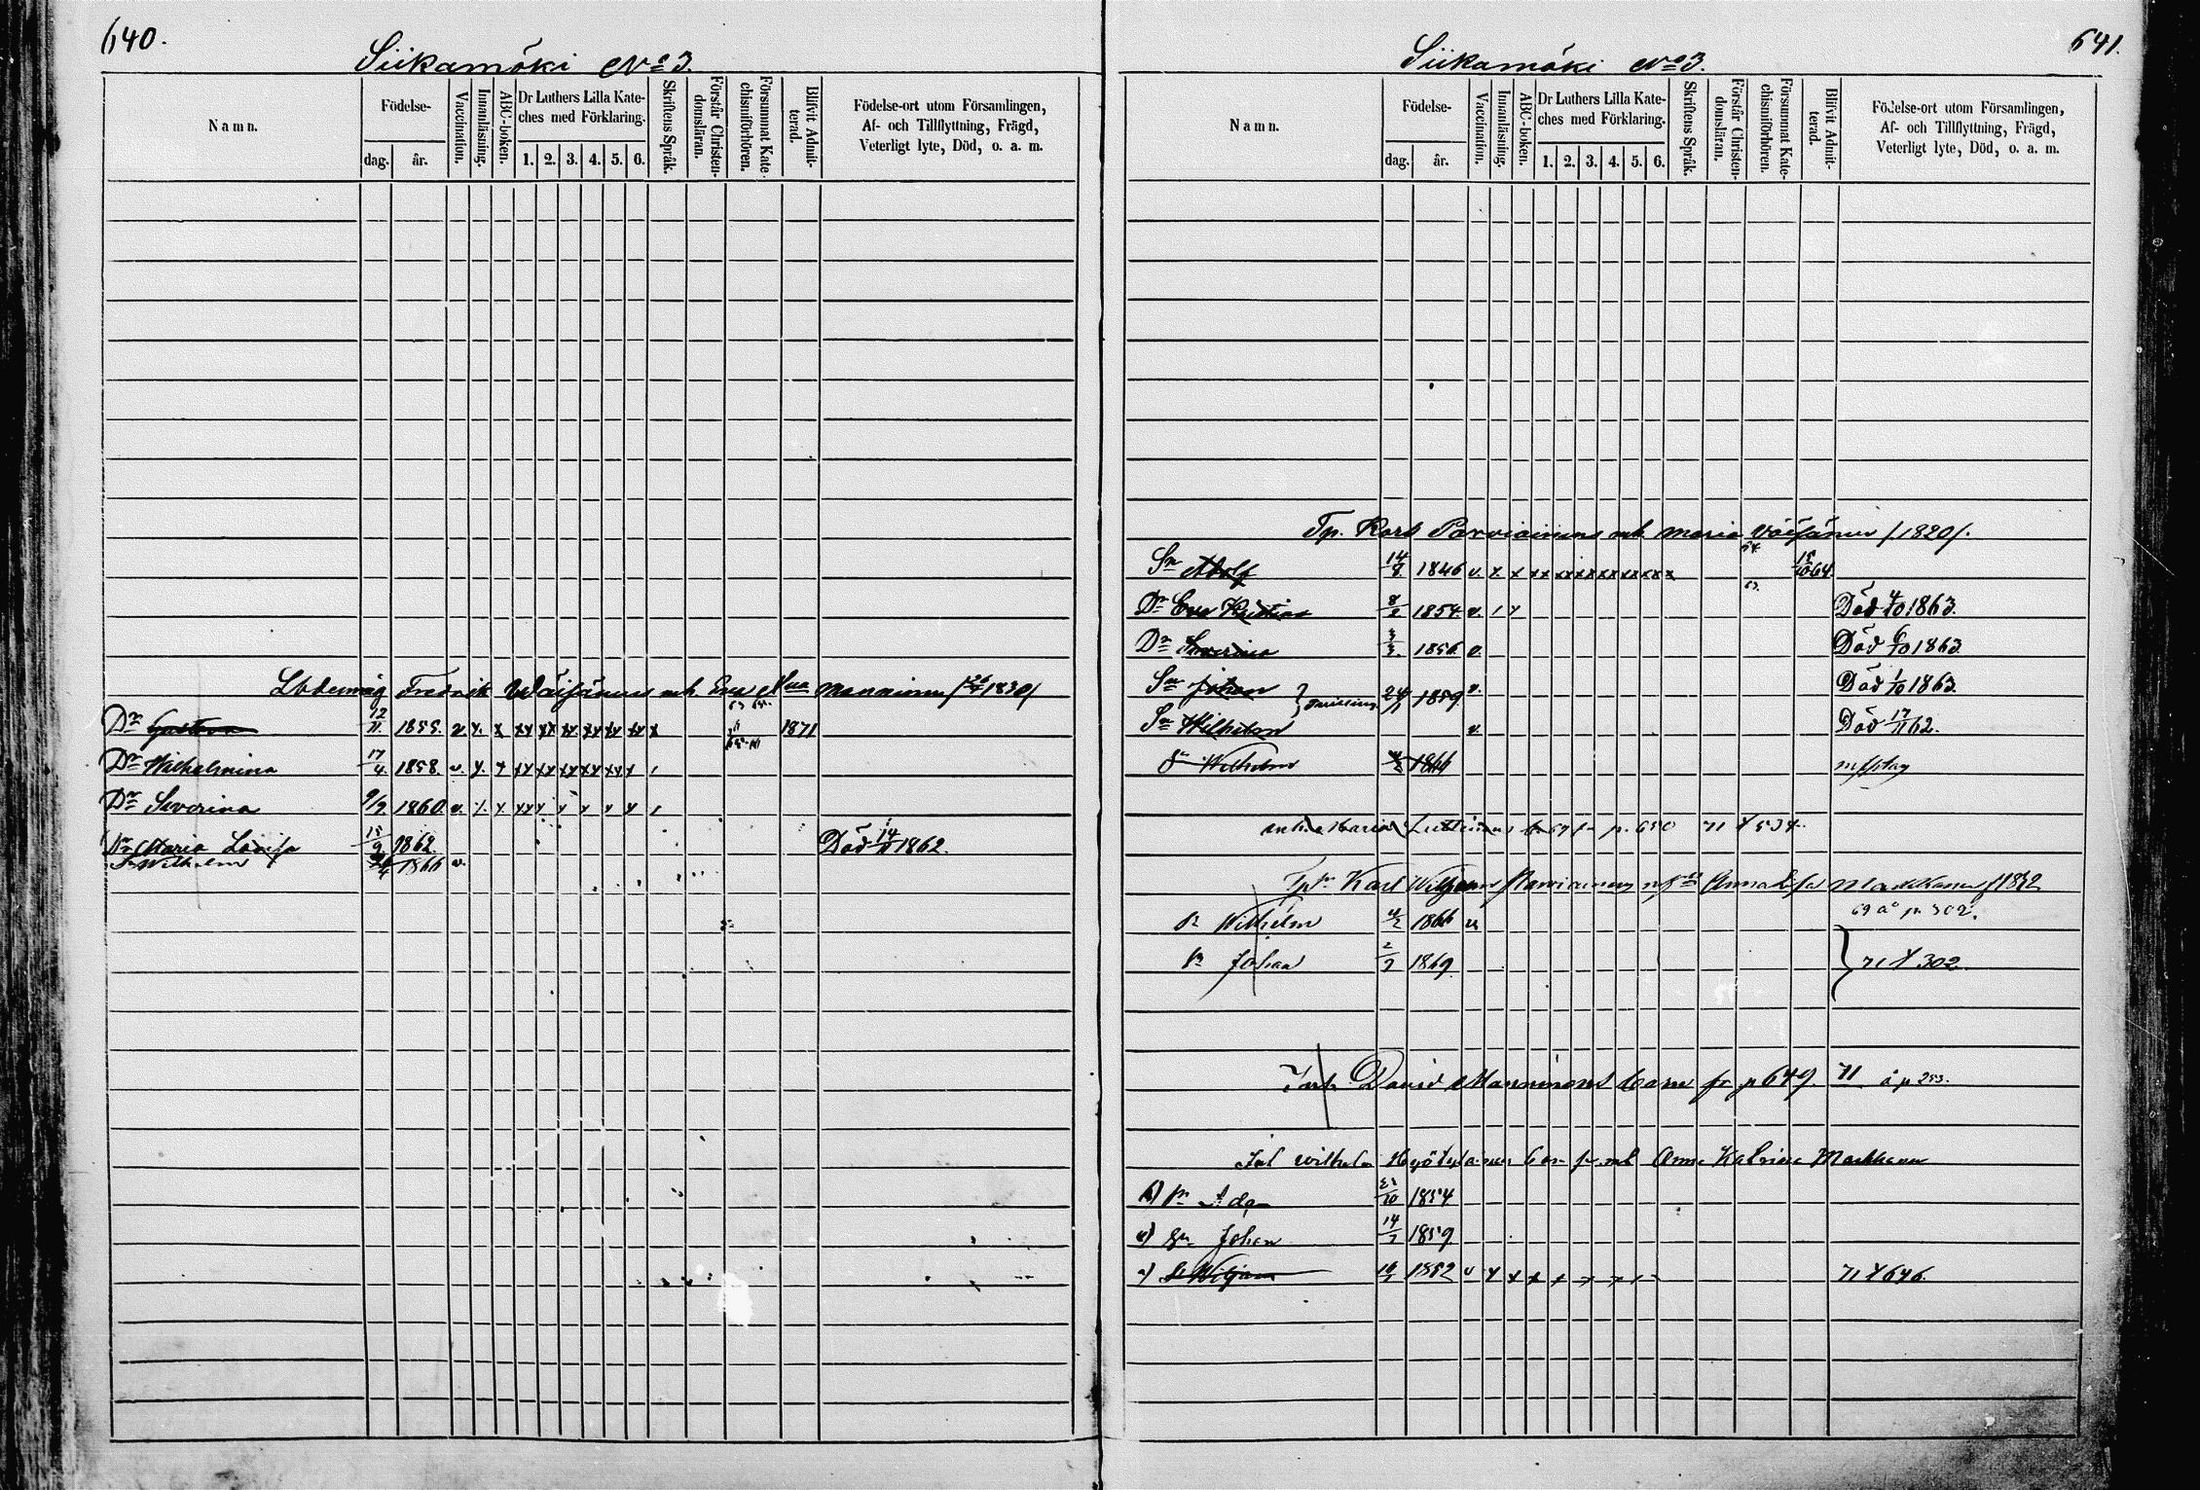 640.
Siikamäki No 3.
Namn.
Födelse-
dag.
år.
Vaccination.
Innanläsning.
ABC-boken.
Dr Luthers Lilla Kate-
ches med Förklaring.
1. 2. 3. 4. 5. 6.
Skriftens Språk.
Förstår Christen-
domsläran.
Försummat Kate-
chismiförhören.
Blifvit Admit-
terad.
Födelse-ort utom Församlingen,
Af- och Tillflyttning, Frägd,
Veterligt lyte, Död, o. a. m.
Fredrik Wäisänen Eva Manninen 1830/
Dr Gustava 12/11 1855. v x x xx xx xx xx xx xx x 1871
Dr Wilhelmina 17/4 1858. v. x. x xx xx xx xx xx x
Dr Severina 9/9 1860. v. x. x xx x x x x x
Dr Maria Lovisa 15/9 1862. Död 14/11 1862.
Sn Wilhelm /4 1866 v.
641.
Siikamäki No 3.
Namn.
Födelse-
dag.
år.
Vaccination.
Innanläsning.
ABC-boken.
Dr Luthers Lilla Kate-
ches med Förklaring.
1. 2. 3. 4. 5. 6.
Skriftens Språk.
Förstår Christen-
domsläran.
Försummat Kate-
chismiförhören.
Blifvit Admit-
terad.
Födelse-ort utom Församlingen,
Af- och Tillflyttning, Frägd,
Veterligt lyte, Död, o. a. m.
Tp. Karl Parviainens enk. Maria Väisänen /1820/.
Sn Adolf 14/8 1846 v. x x xx xx xx xx xx xx x 15/10 64.
Dr Eva Kristina 8/2 1854. v. Död 4/10 1863.
Dr Severina 3/3 1856 v. Död 6/10 1863
Sn Johan 24/1 1859 v. Död 1/10 1863.
Sn Wilhelm v. Död 17/11 62.
Sn Wilhelm 1866
enk. Maria p. 650 71 534.
Karl Wilhelm Parviainen Anna Lisa 1832
69 å p. 302.
Sn Wilhelm 4/2 1866 v
Sn Johan 2/7 1869. 71 302.
David Manninen fr p 649. 71 å p 253.
Wilhelm Anna Katrina Markkanen
b) Sn Adam 21/10 1854
c) Sn Johan 14/7 1859
a) 1852 v x x x x x x 71 646.